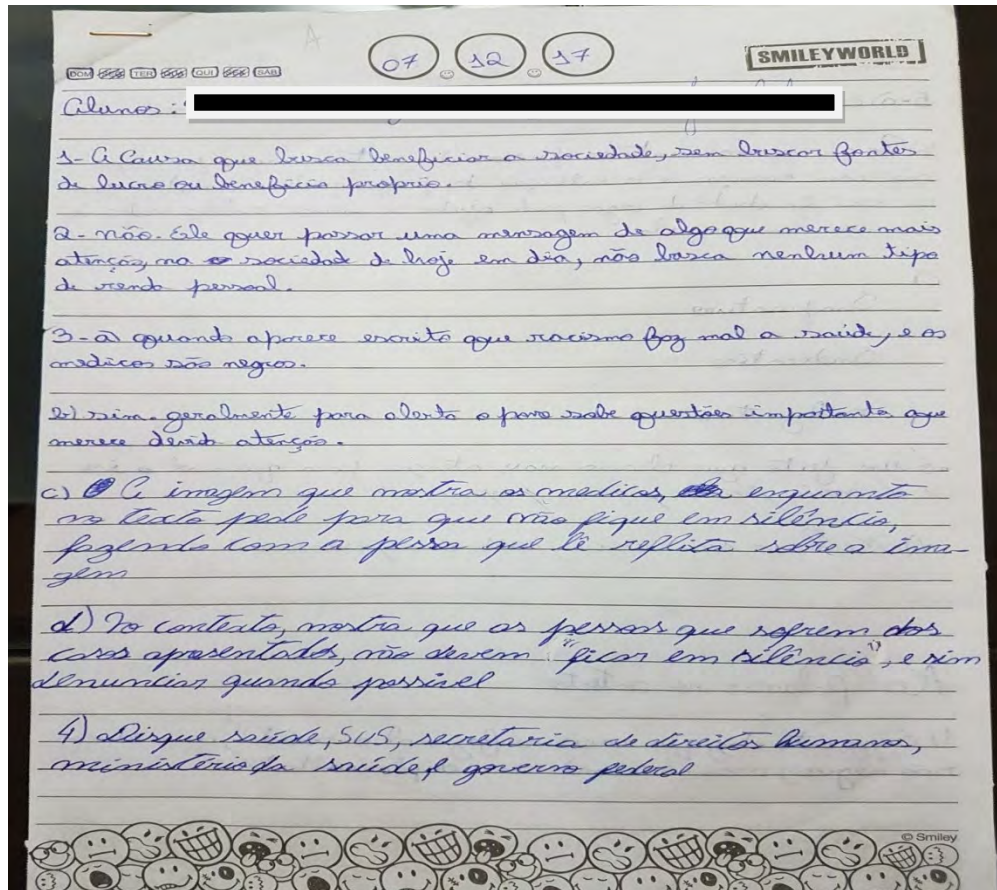 07 12 17
SMILEYWORLD
DOM SEG TER QUA QUI SEX SÁB
Alunos:
1- A Causa que busca beneficiar a sociedade, sem buscar fontes
de lucro ou beneficio proprio.
2- não. Ele quer passar uma mensagem de algo que merece mais
atenção, na sociedad de hoje em dia, não busca nenhum tipo
de venda pessoal.
3-a) quando aparece escrito que racismo faz mal a saúde, e os
medicos são negros.
b) sim. geralmente para alerta o povo sobe questões importante que
merece devido atenção.
c) A imagem que mostra os medicos, enquanto
no texto pede para que não fique em silêncio,
fazendo com a pessoa que lê reflita sobre a ima-
gem
d) No contexto, mostra que as pessoas que sofrem dos
casos apresentados, não devem "ficar em silêncio", e sim
denunciar quando possível
4) Disque saúde, SUS, secretaria de direitos humanos,
ministério da saúde, e governo federal
© Smiley